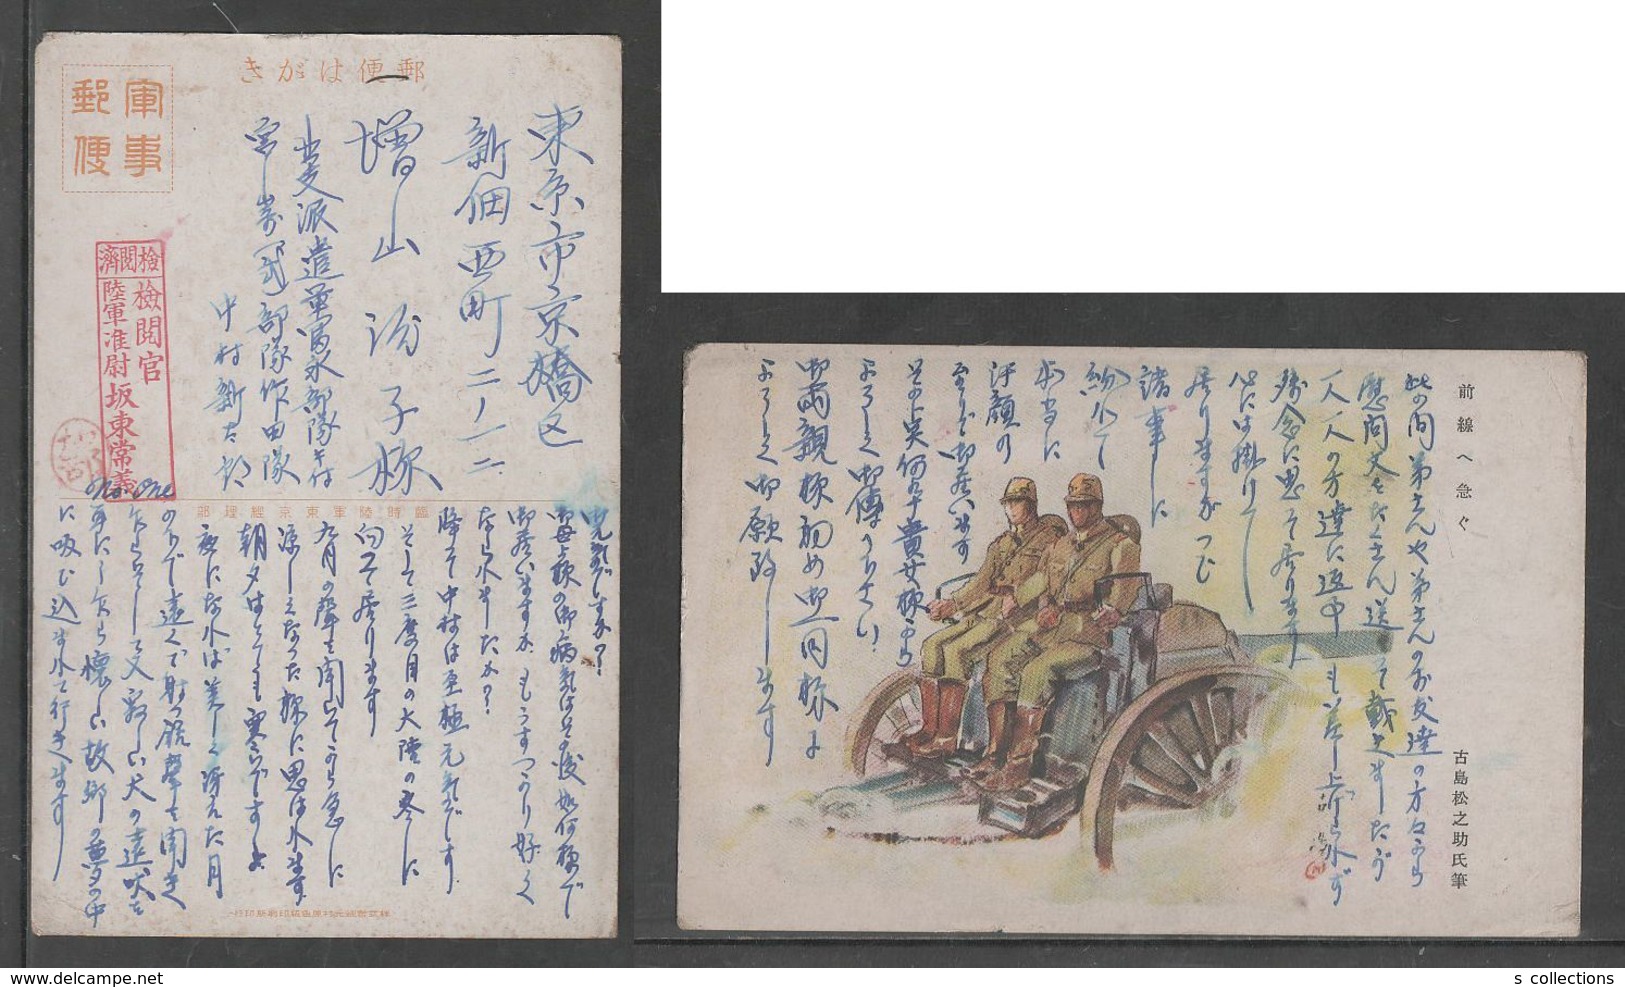 郵便はがき
軍事
郵便
東京市京橋区
新佃西町二ノ一二
増山
子様
支派遣
部隊作田隊
中村新太郎
検閲済
検閲官
陸軍准尉 坂東常義
臨時陸軍東京経理部
元気ですか?
御母上様の御病気は其の後如何様で
御座いますか もうすつかり好く
なられましたか?
降つて中村は至極元気です
そして二度目の大陸の冬に
向つて居ります
九月の声を聞いてから急に
涼しくなつた様に思はれます
朝夕はとても寒いですよ
夜になれば美しく冴えた月
のもとで遠くで射つ銃声を聞き
乍ら そして又淋しい犬の遠吠を
耳にし乍ら懐しい故郷の夢の中
に吸ひ込まれて行きます
前線へ急ぐ
古島松之助氏筆
此の間弟さんや弟さんのお友達の方々から
慰問文をたくさん送つて戴きましたが
一人一人の方達に返事も差し上げられず
残念に思つて居ります
心には掛けて
居りますがつひ
諸事に
紛れて
本当に
汗顔の
至りで御座います
其の上何卒貴女様から
よろしく御伝へ下さい
御両親様初め御一同様に
よろしく御願致します
s collections